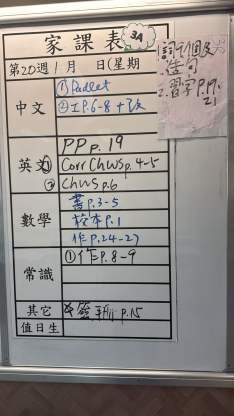 家課表
3A
第20週1月 日(星期
中文
① Padlet
② 工P.6-8 + 改
1. 詞9個及
造句
2. 習字P.19-
21
英文
PP p. 19
② Corr Chws p. 4-5
③ Chws p.6
數學
書P.3-5
校本P.1
作P.24-27
常識
① 作P.8-9
其它
P.15
值日生